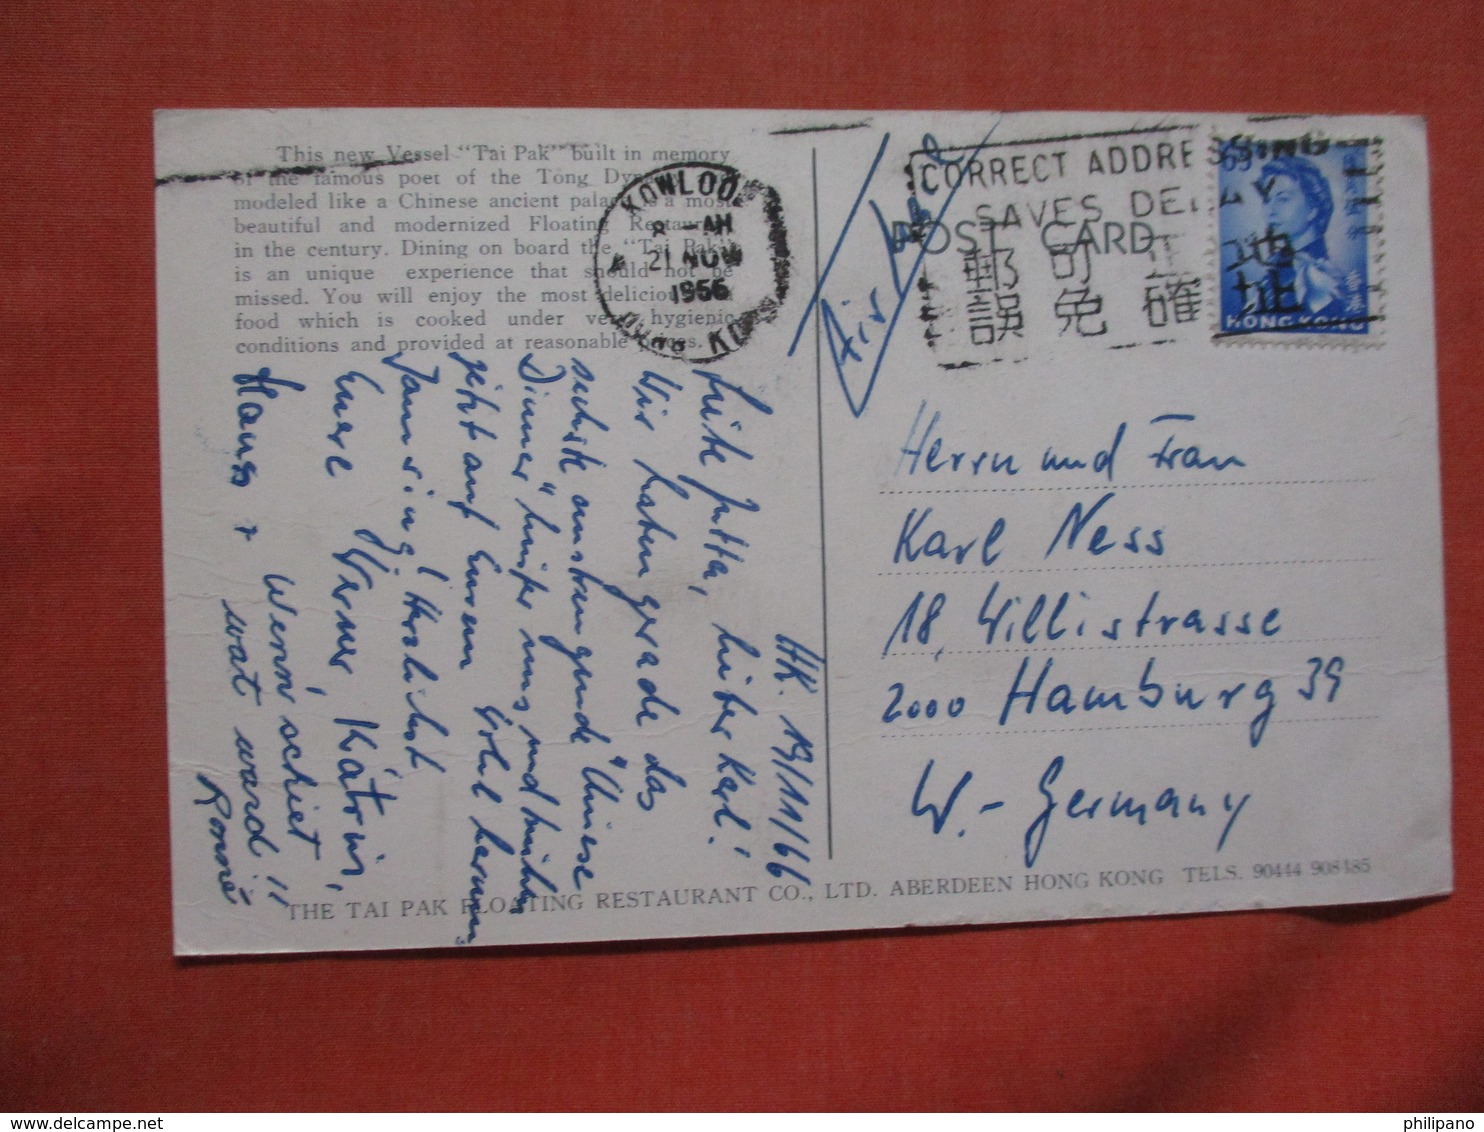 This new Vessel "Tai Pak" built in memory
of the famous poet of the Tong
modeled like a Chinese ancient is a most
beautiful and modernized Floating Restaurant
in the century. Dining on board the "Tai Pak"
is an unique experience that should not be
missed. You will enjoy the most delicious
food which is cooked under very hygienic
conditions and provided at reasonable prices.
KOWLOON
8 - AM
21 NOV
1966
KOWLOON
CORRECT ADDRESSING
SAVES DELAY
郵可正地
誤免確址
HONG KONG
香港
POST CARD
Air
HK. 19/11/66
Jutta, lieber Karl!
Wir haben gerade das
sechste anstrengende "Chinese
Dinner" hinter uns und
jetzt auf Eurem herum
Herzlichst
Euere Werner, Katrin,
Hans + 
wat ward!!
Herrn und Frau
Karl Ness
18, Willistrasse
2000 Hamburg 39
W.-Germany
THE TAI PAK FLOATING RESTAURANT CO., LTD. ABERDEEN HONG KONG TELS. 90444 908485
philipano